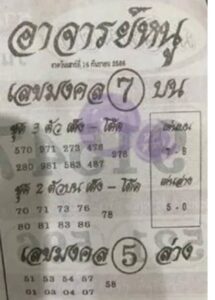 อาจารย์หนู
งวดวันเสาร์ที่ 16 กันยายน 2566
เลขมงคล 7 บน
ชุด 3 ตัว เต็ง - โต๊ด
570 271 273 476
280 981 583 487
278
เด่นบน
7 - 8
ชุด 2 ตัวบน เต็ง - โต๊ด
70 71 73 76
80 81 83 86
78
เด่นล่าง
5 - 0
เลขมงคล 5 ล่าง
51 53 54 57
01 03 04 07
58